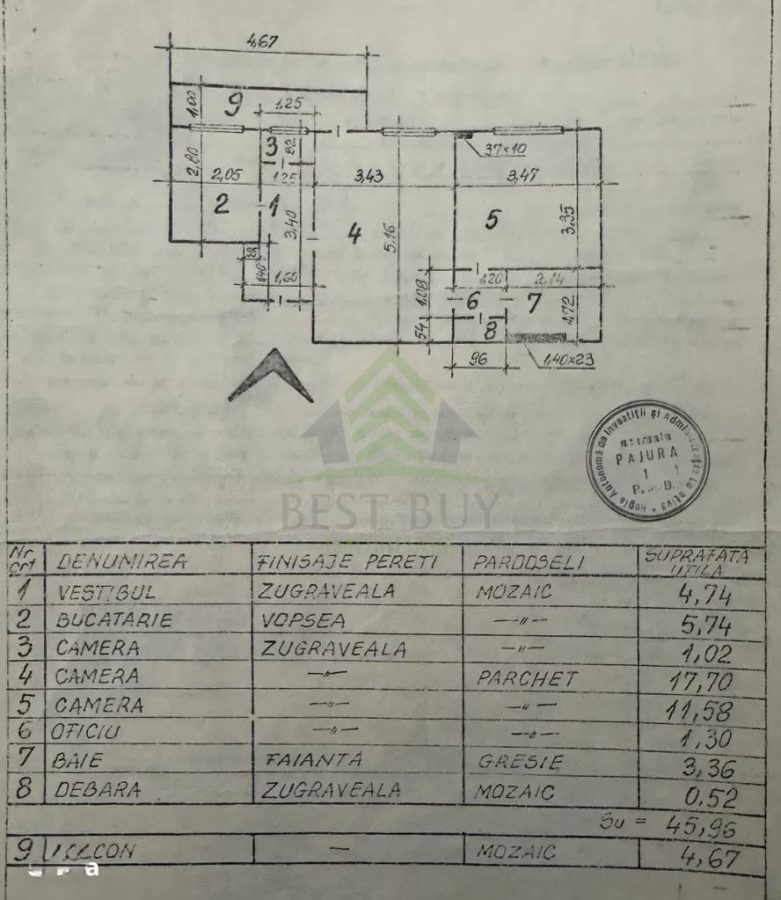 4,67
1,00
9
1,25
3
82
37×10
2,80
2,05
1,25
3,43
3,47
2
1
3,40
4
5,16
5
3,35
1,40
1,60
1,20
2,14
1,08
6
7
1,72
54
8
96
1,40×23
Regia Autonoma de Investitii și
PAJURA
1
BEST BUY
Nr. crt
DENUMIREA FINISAJE PERETI PARDOSELI SUPRAFATA UTILA
1 VESTIBUL ZUGRAVEALA MOZAIC 4,74
2 BUCATARIE VOPSEA —"— 5,74
3 CAMERA ZUGRAVEALA —"— 1,02
4 CAMERA —"— PARCHET 17,70
5 CAMERA —"— —"— 11,58
6 OFICIU —"— —"— 1,30
7 BAIE FAIANTA GRESIE 3,36
8 DEBARA ZUGRAVEALA MOZAIC 0,52
Su = 45,96
9 — MOZAIC 4,67